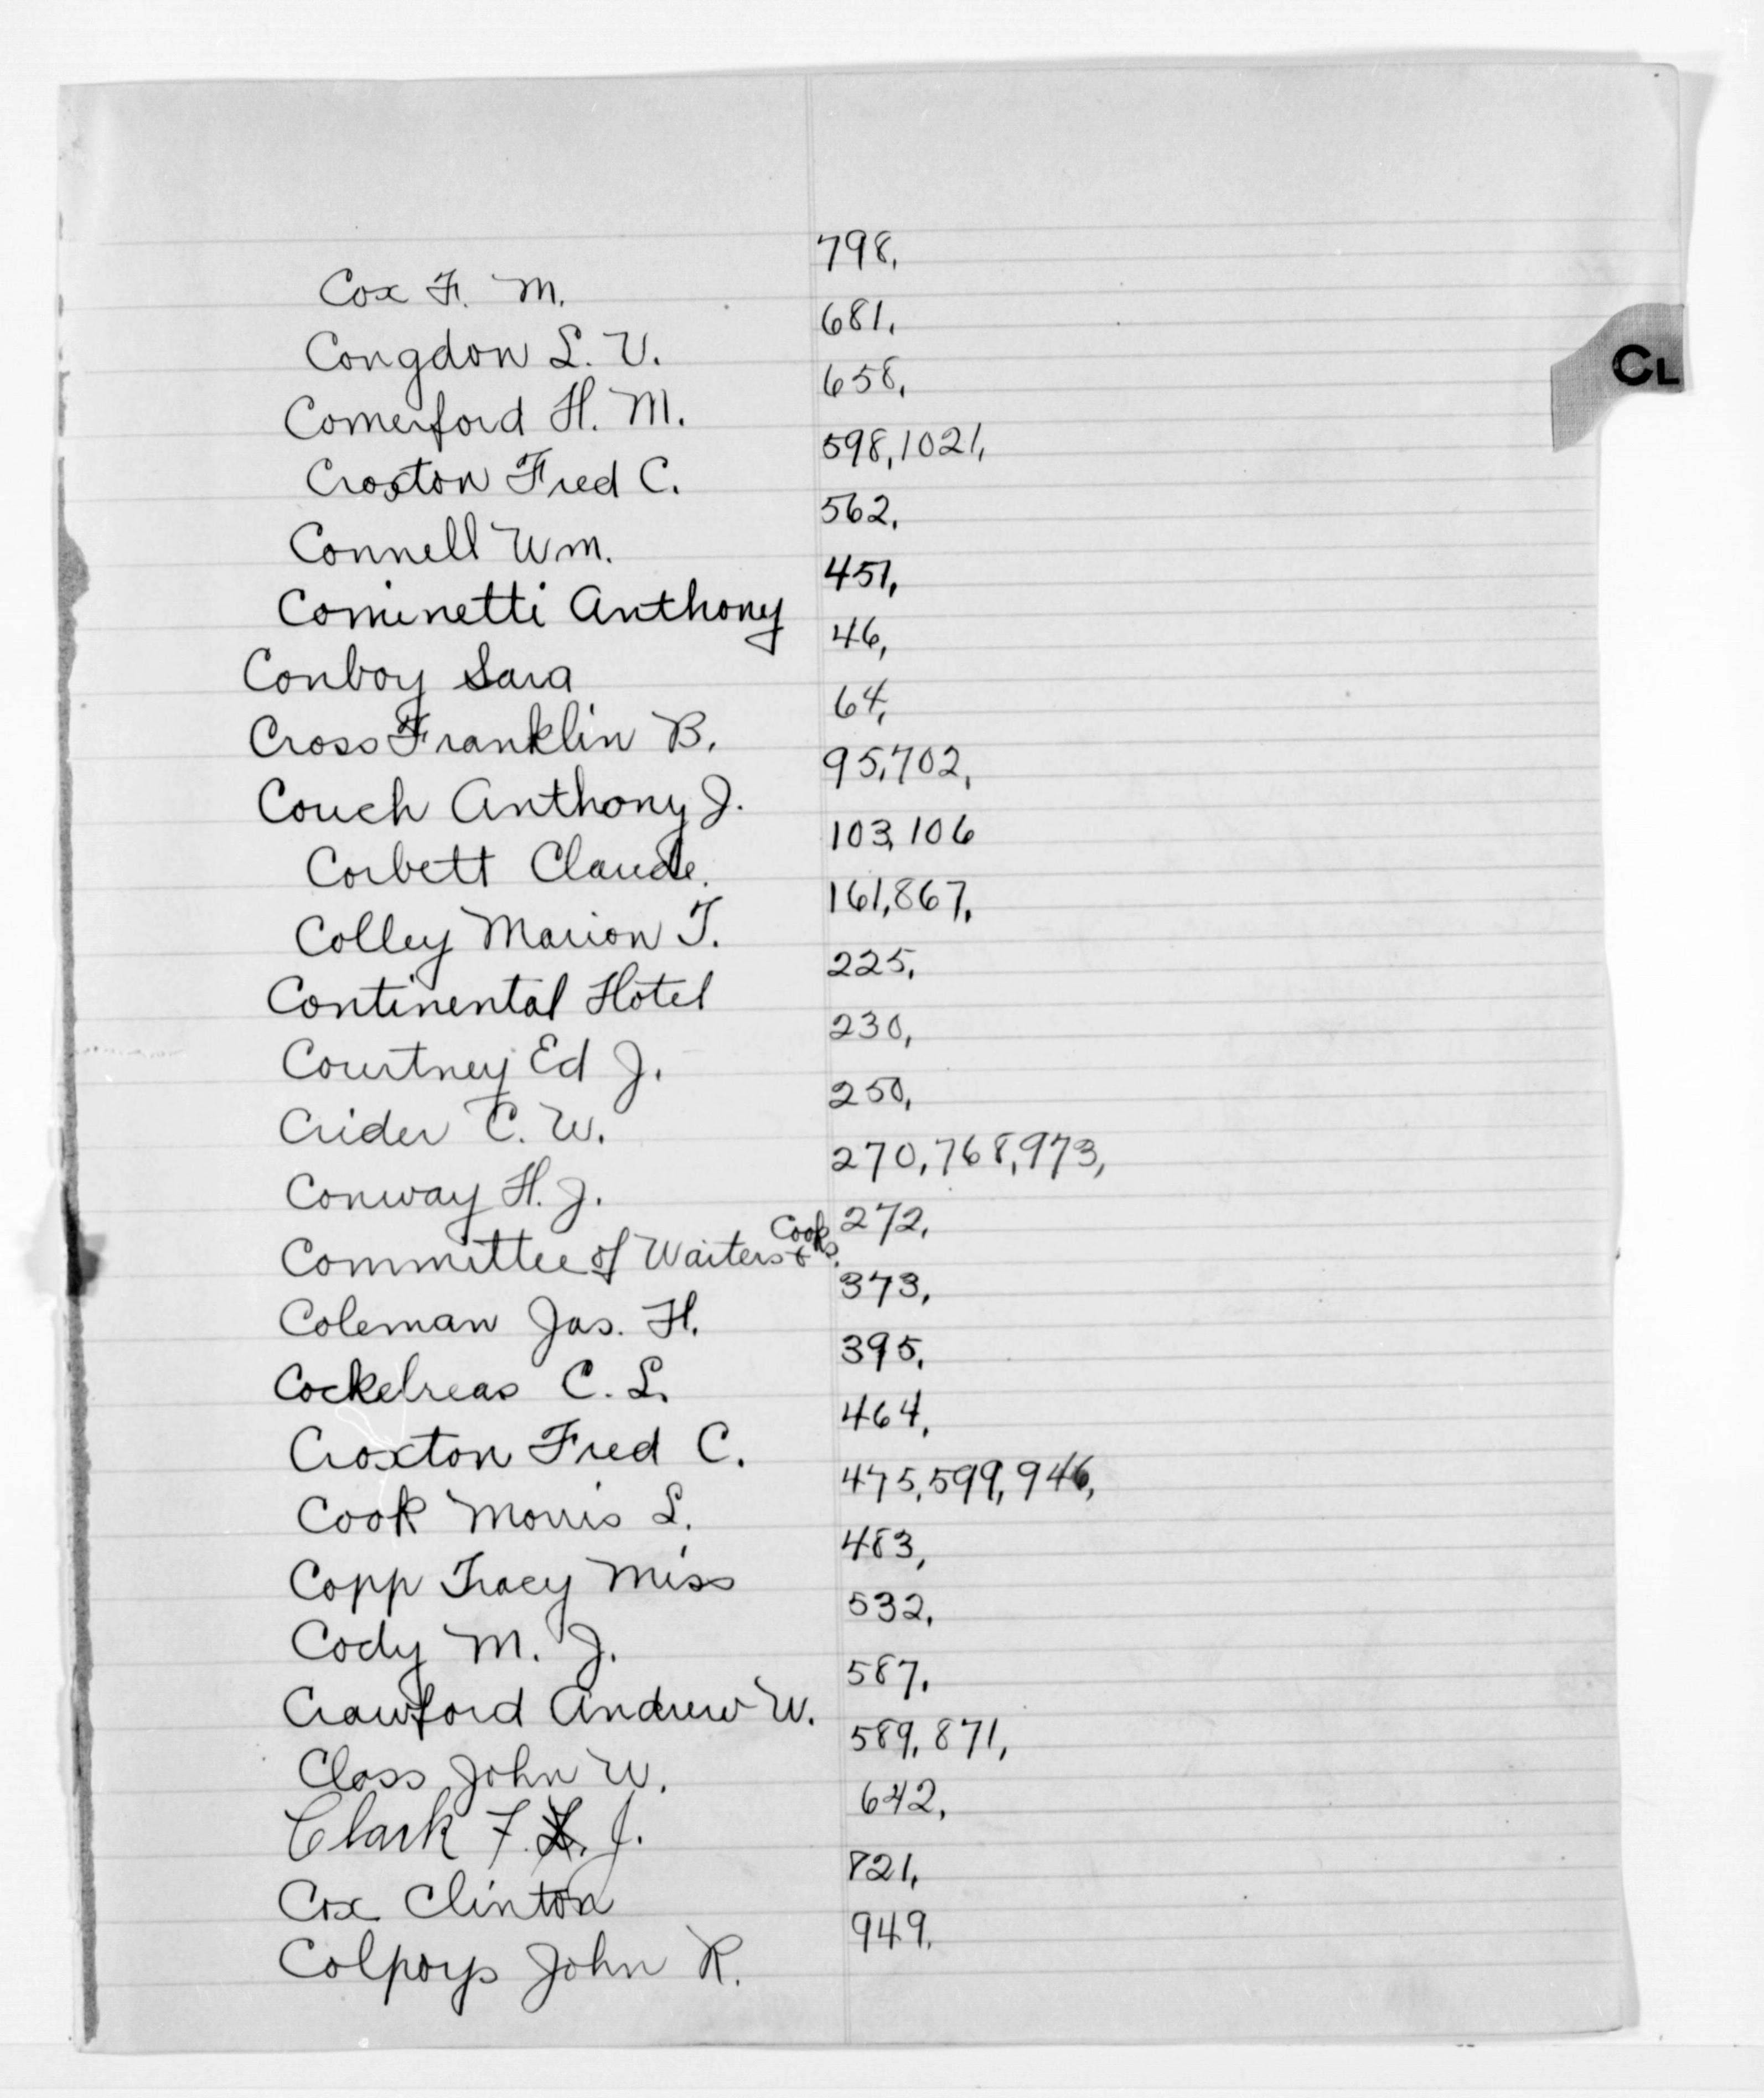 Cox F. M. 798,
Congdon L. V. 681,
Comerford H. M. 658,
Croxton Fred C. 598, 1021,
CL
Connell Wm. 562,
Cominetti Anthony 451,
Conboy Sara 46,
Cross Franklin B. 64,
Couch Anthony J. 95, 702,
Corbett Claude. 103, 106
Colley Marion T. 161, 867,
Continental Hotel 225,
Courtney Ed J. 230,
Crider C. W. 250,
Conway H. J. 270, 768, 973,
Committee of Waiters & Cooks. 272,
Coleman Jas. H. 373,
Cockelreas C. L. 395,
Croxton Fred C. 464,
Cook Morris L. 475, 599, 946,
Copp Tracy Miss 483,
Cody M. J. 532,
Crawford Andrew W. 587,
Class John W. 589, 871,
Clark F. J. 642,
Cox Clinton 821,
Colpoys John R. 949.